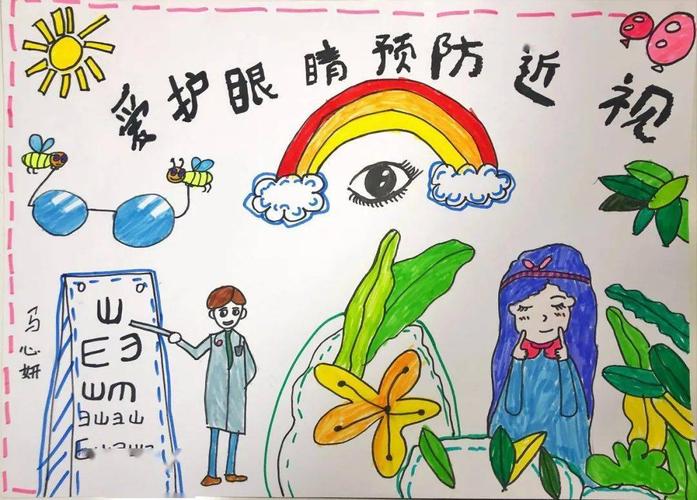 爱护眼睛预防近视
马心妍
Ш
E Ǝ
Ш m
Ǝ Ш Ǝ Ш